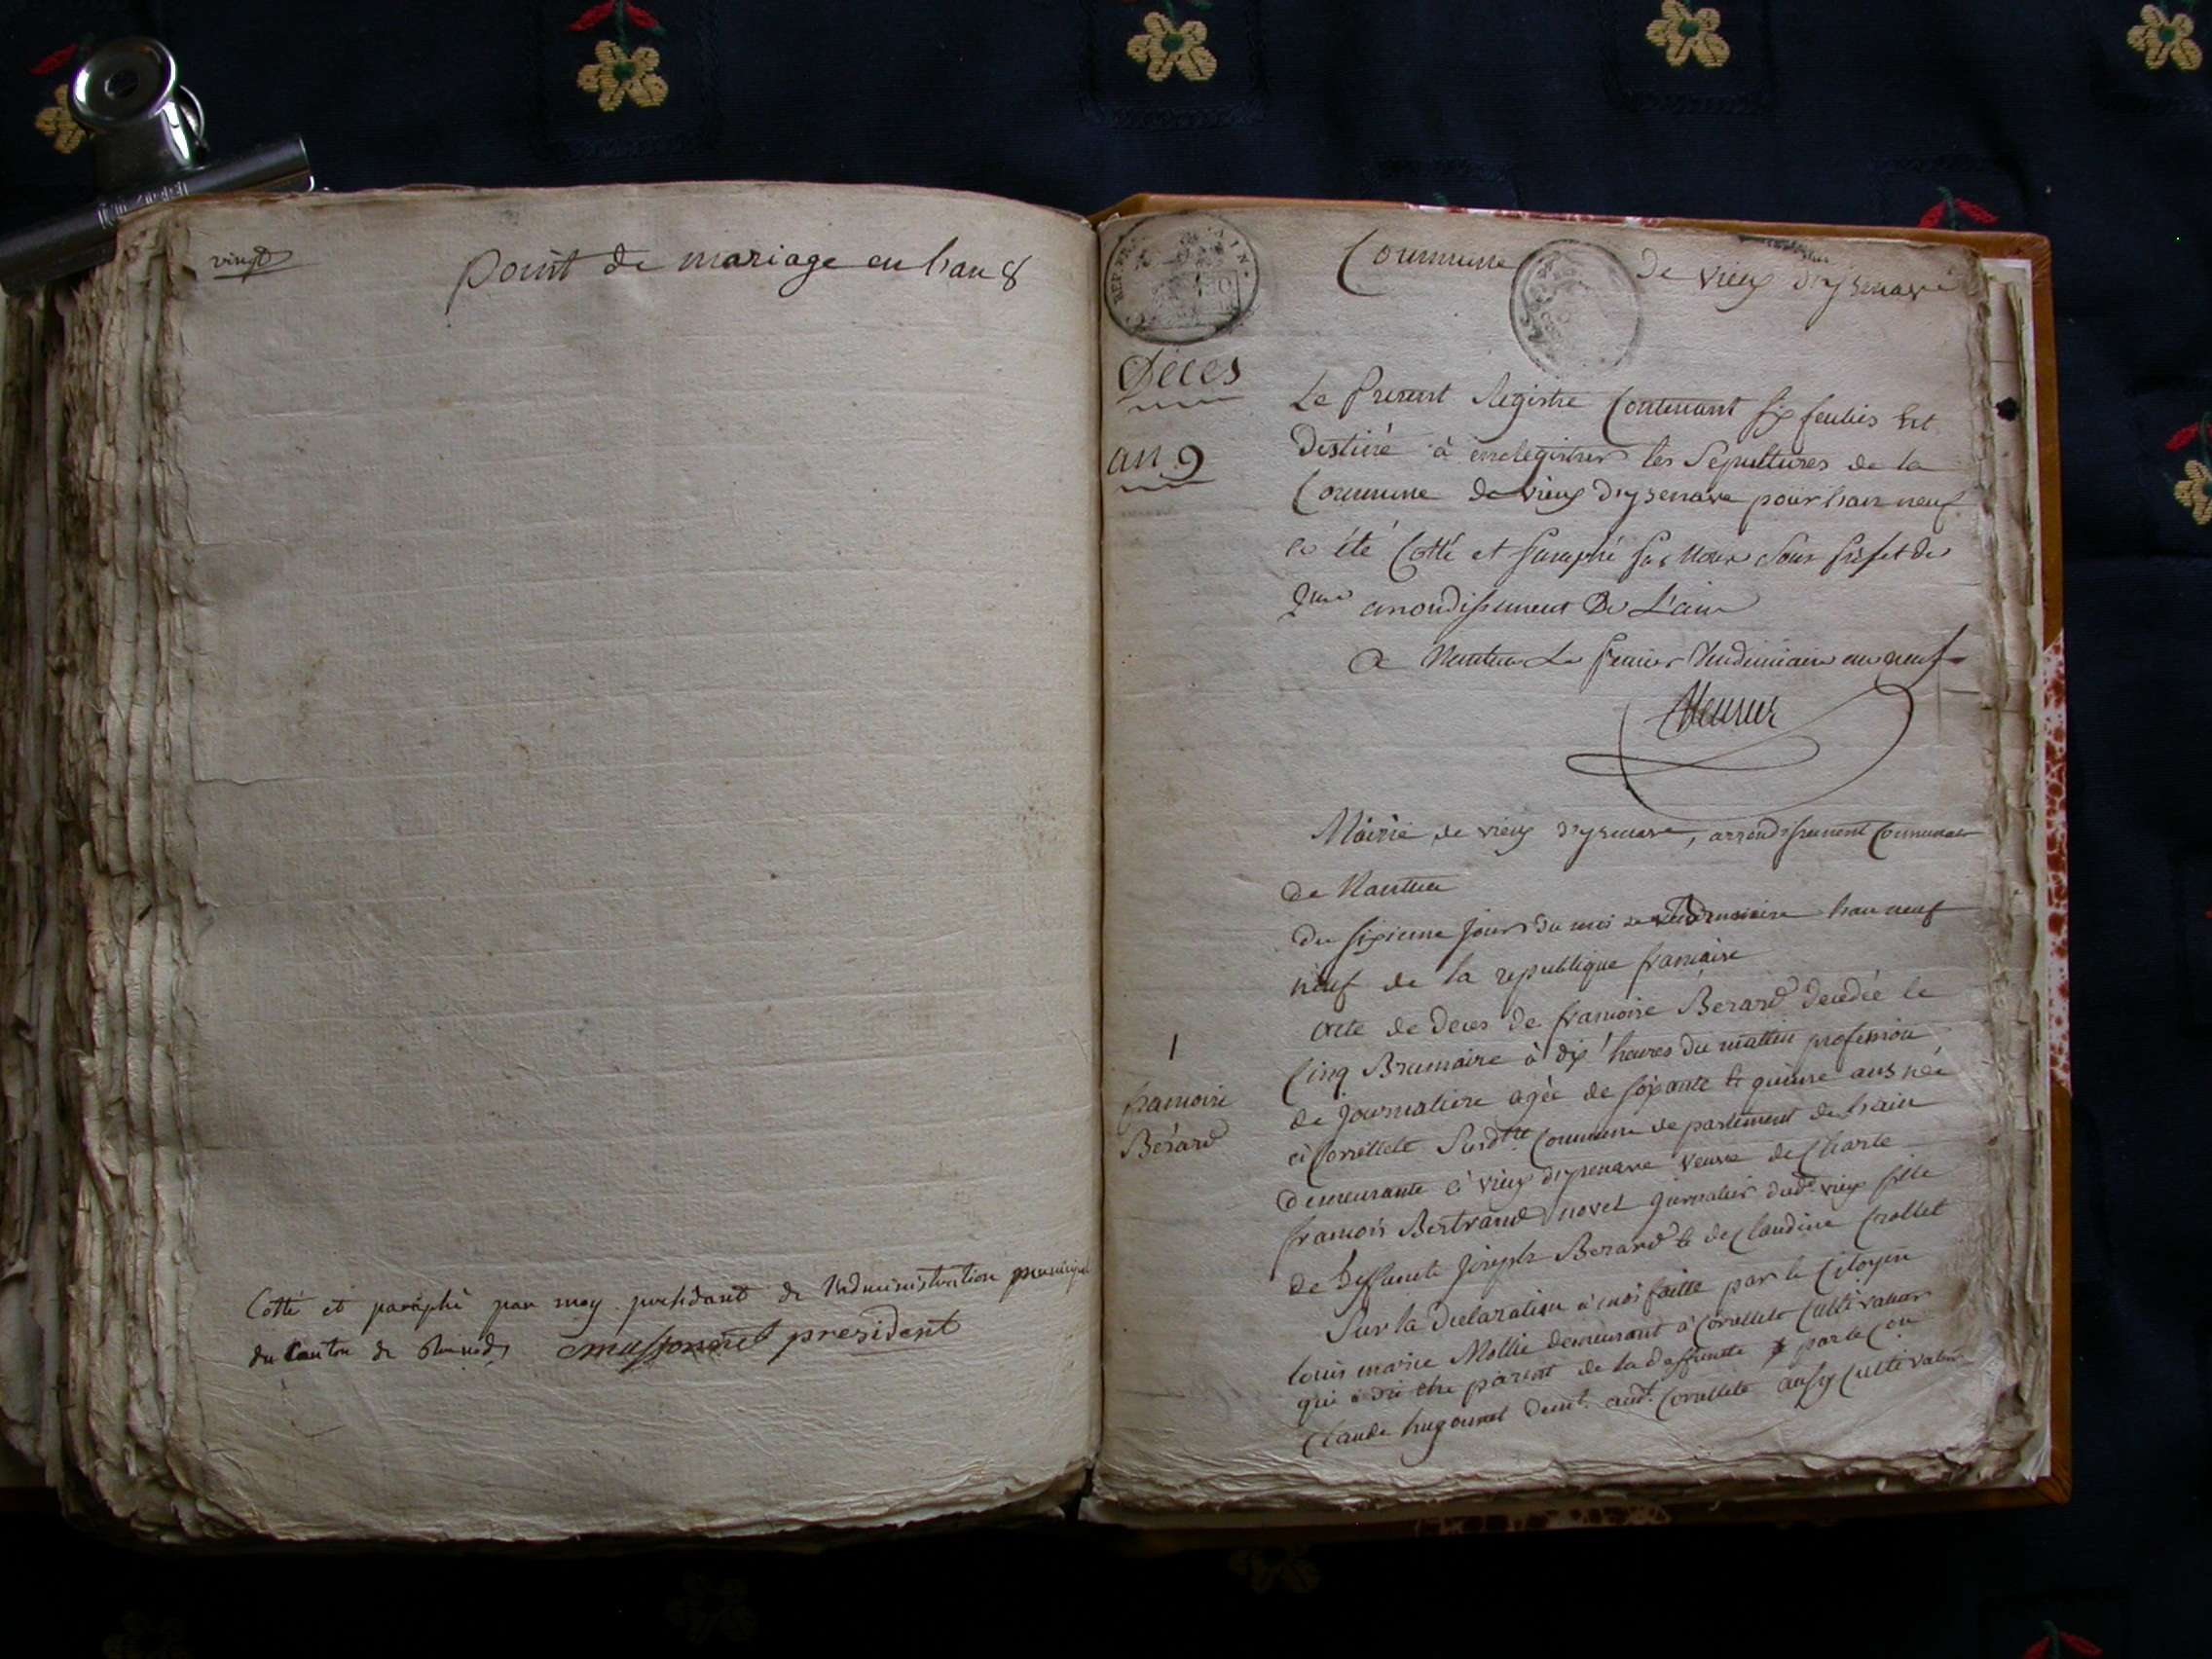 vingt
point de mariage en lian 8
Cotté et paraphé par moy président de l'administration municipal
du Canton de president
Commune de vieux d'ysenave
Décès
an 9
Le présent Registre Contenant six feulies Est
Destiné à enrelegistrer les Sépultures de la
Commune de vieux d'ysenave pour lian neuf
a été Cotté et paraphé par Nous Sous préfet du
2me arrondissement De L'ain
A Nantua Le premier Vendémiaire an neuf
Mairie de vieux d'ysenave, arrondissement Communal
de Nantua
Du sixieme jour du mois de lian neuf
neuf de la republique francaise
acte de deces de francoise Berard decedée le
1
francoise
Bérard
Cinq Brumaire à dix heures du mattin profession
de journaliere agée de soixante & quinze ans née
à Corvillete Susdtte Commune departement de liain
demeurante à vieux d'ysenave veuve de Charle
francois Bertrand novel journalier dudt vieux fille
de deffunts Joseph Berard & de Claudine Crollet
Sur la declaration à moi faitte par le Citoyen
louis marie Mollie demeurant à Corvillete Cultivateur
qui a dit être parent de la deffunte & par le Cen
Claude hugonnet demt. audt. Corvillete aussy Cultivateur